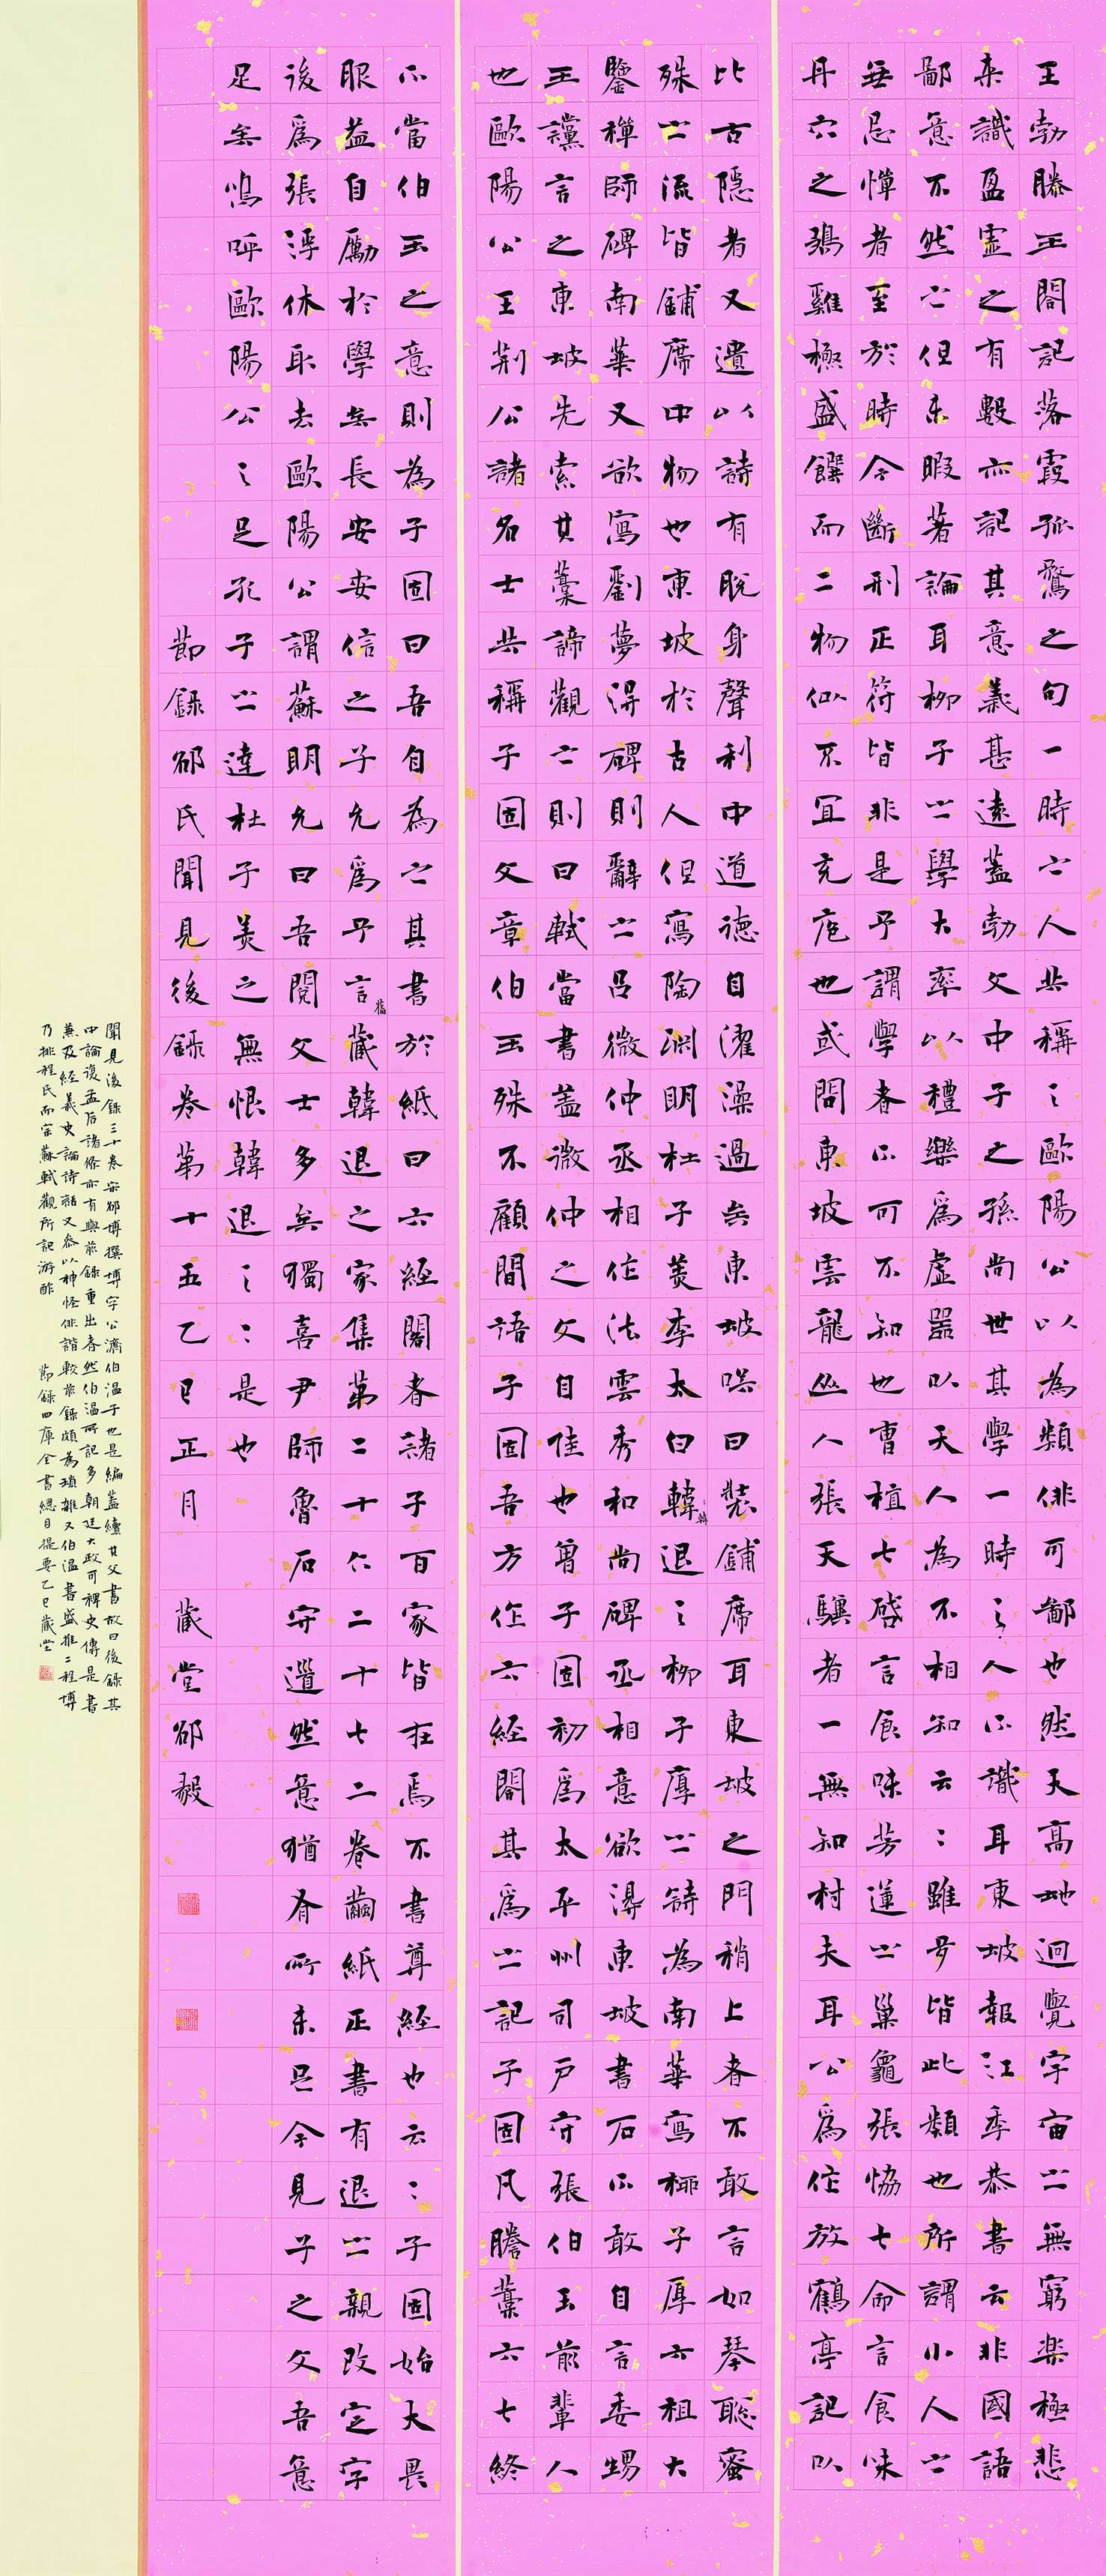 王勃滕王閣記落霞孤鶩之句一時之人共稱之歐陽公以為類俳可鄙也然天高地迥覺宇宙之無窮樂極悲
來識盈虛之有數亦記其意義甚遠蓋勃文中子之孫尚世其學一時之人不識耳東坡報江季恭書云非國語
鄙意不然之但未暇著論耳柳子之學大率以禮樂為虛器以天人為不相知云云雖多皆此類也所謂小人之
無忌憚者至於時令斷刑正符皆非是予謂學者不可不知也曹植七啓言食味芳蓮之巢龜張協七命言食味
丹穴之鶏雞極盛饌而二物似不宜充庖也或問東坡雲龍山人張天驥者一無知村夫耳公為作放鶴亭記以
比古隱者又遺以詩有脫身聲利中道德自濯澡過矣東坡笑曰裝鋪席耳東坡之門稍上者不敢言如琴聰蜜
殊之流皆鋪席中物也東坡於古人但寫陶淵明杜子美李太白韓退之柳子厚之詩為南華寫柳子厚六祖大
鑒禪師碑南華又欲寫劉夢得碑則辭之呂微仲丞相作法雲秀和尚碑丞相意欲得東坡書石不敢自言委甥
王讜言之東坡先索其藁諦觀之則曰軾當書蓋微仲之文自佳也曾子固初為太平州司戶守張伯玉前輩人
也歐陽公王荊公諸名士共稱子固文章伯玉殊不顧間語子固吾方作六經閣其為之記子固凡謄藁六七終
不當伯玉之意則為子固曰吾自為之其書於紙曰六經閣者諸子百家皆在焉不書尊經也云云子固始大畏
服益自勵於學矣長安安信之子允為予言舊藏韓退之家集第二十六二十七二卷繭紙正書有退之親改定字
後為張浮休取去歐陽公謂蘇明允曰吾閱文士多矣獨喜尹師魯石守道然意猶有所未足今見子之文吾意
足矣嗚呼歐陽公之足孔子之達杜子美之無恨韓退之之是也
節錄邵氏聞見後錄卷第十五乙巳正月 藏堂邵毅
聞見後錄三十卷宋邵博撰博字公濟伯溫子也是編蓋續其父書故曰後錄其
中論復孟后諸條亦有與前錄重出者然伯溫所記多朝廷大政可裨史傳是書
兼及經義史論詩話又參以神怪俳諧較前錄頗為瑣雜又伯溫書盛推二程博
乃排程氏而宗蘇軾觀所記游酢 節錄四庫全書總目提要乙巳藏堂